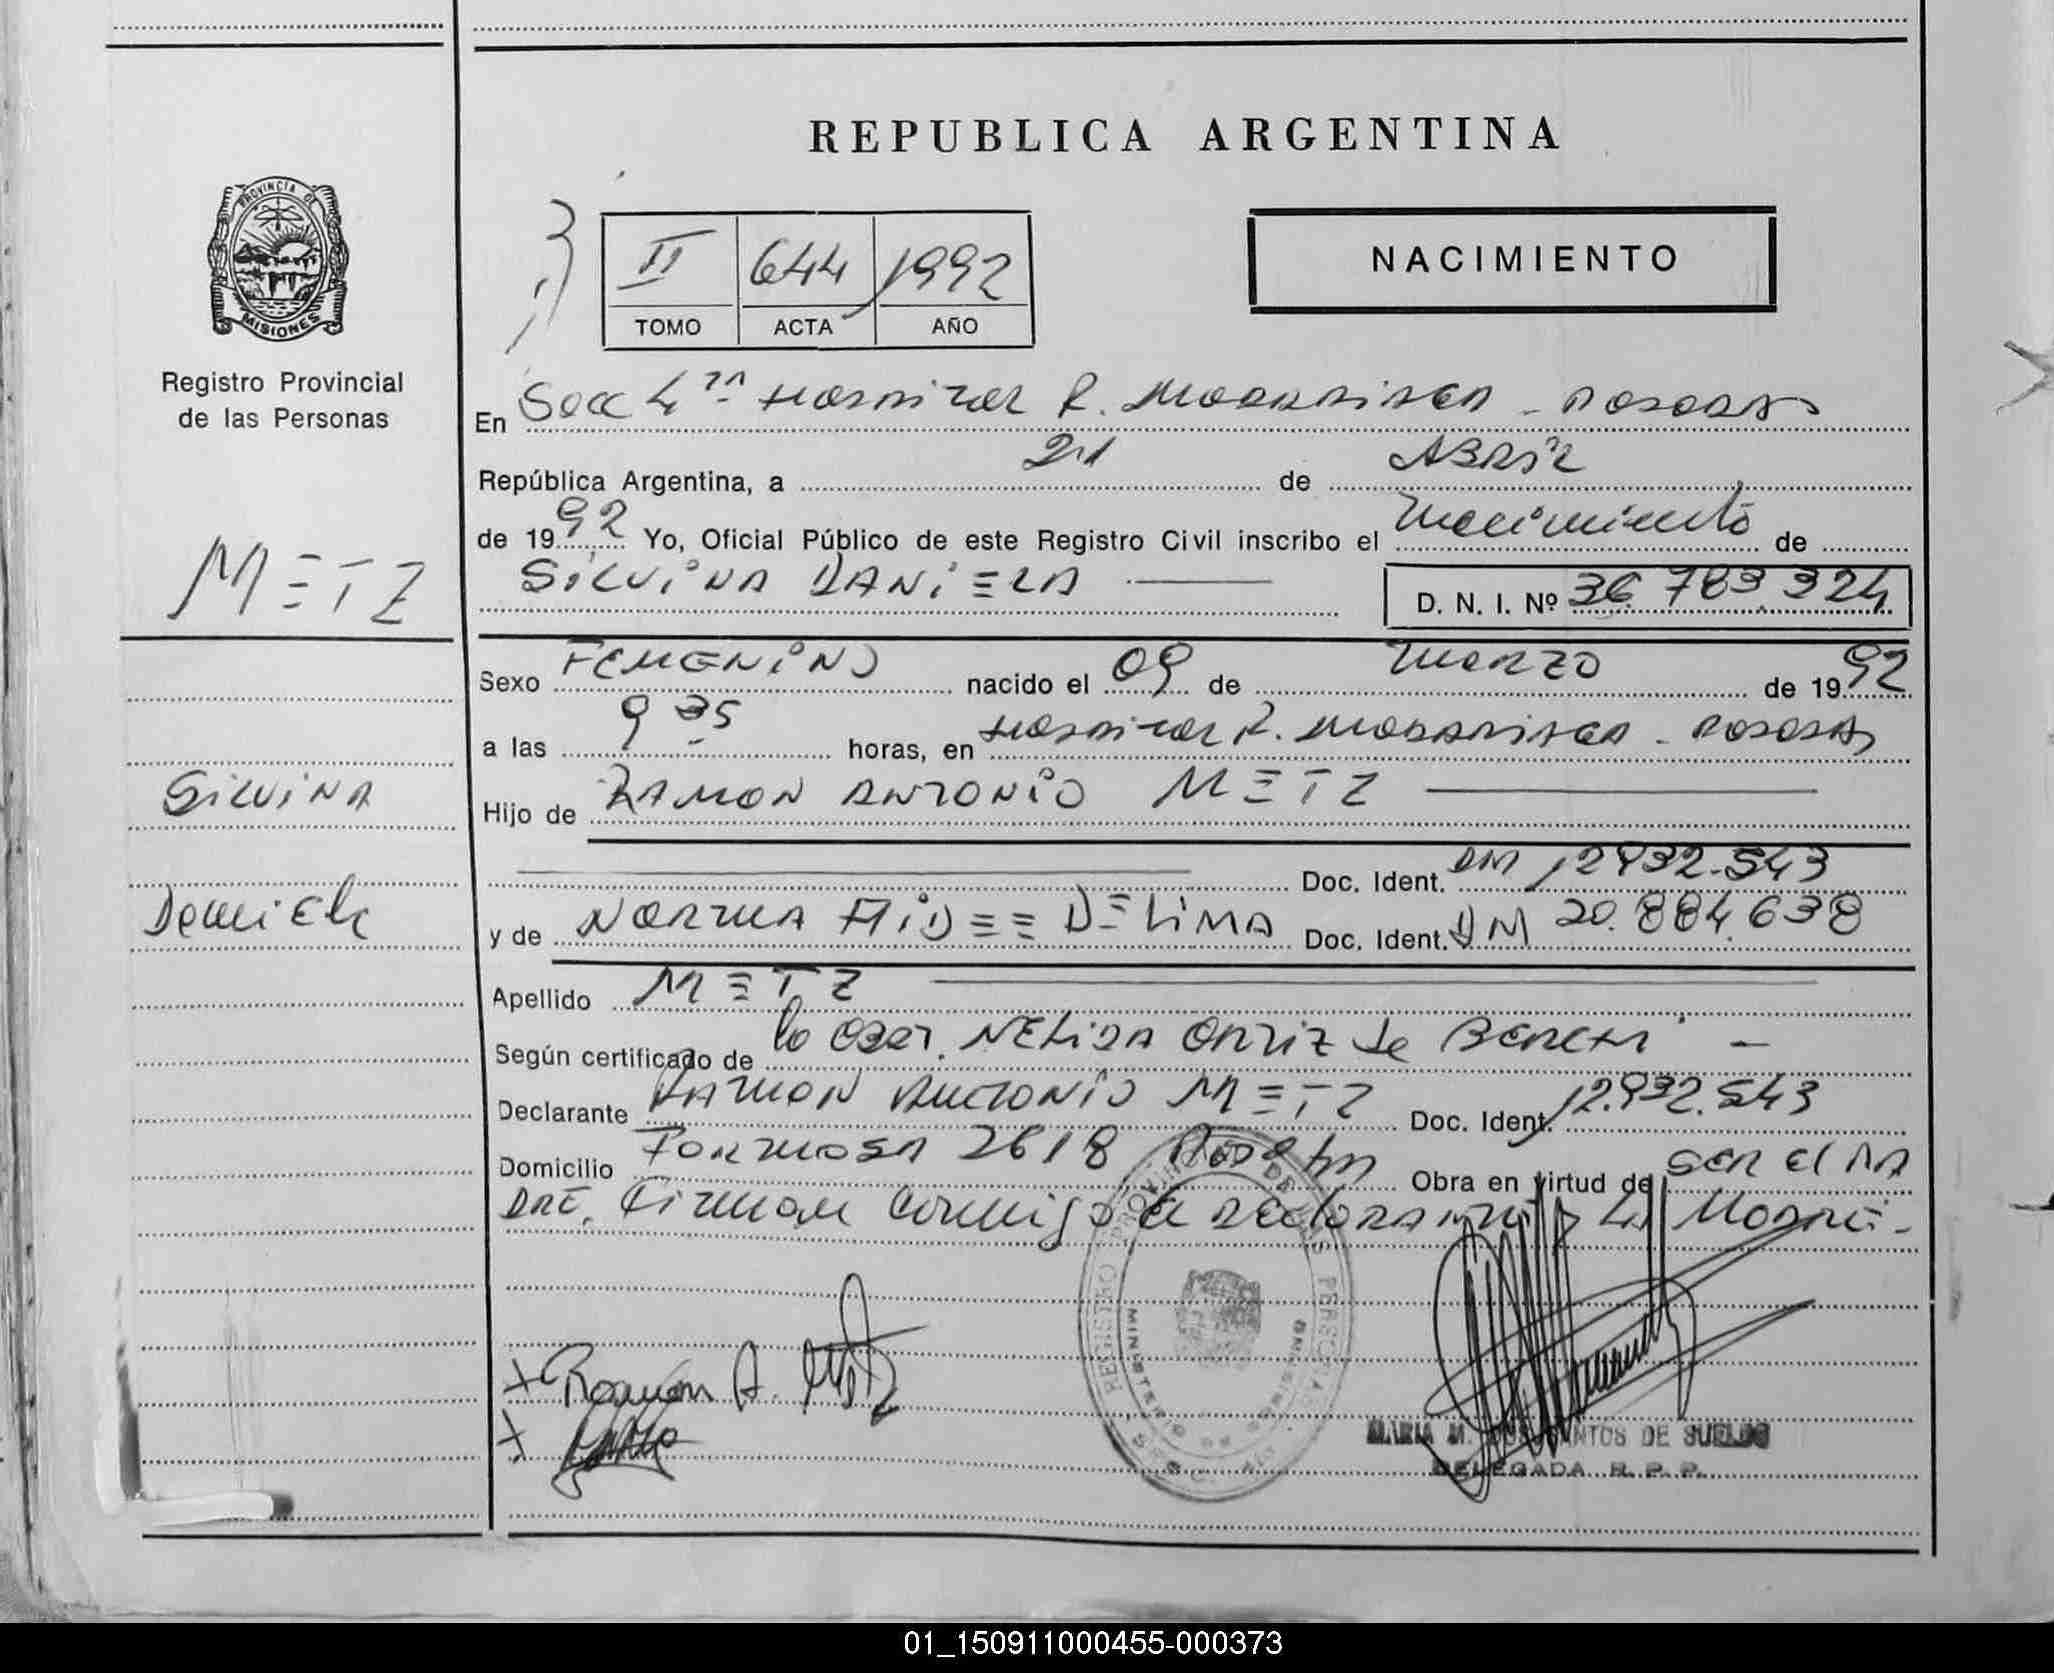 REPUBLICA ARGENTINA
PROVINCIA DE
MISIONES
Registro Provincial
de las Personas
II 644 1992
TOMO ACTA AÑO
NACIMIENTO
En Secc 4ta Hospital R. Madariaga - Posadas
República Argentina, a 21 de Abril
de 1992 Yo, Oficial Público de este Registro Civil inscribo el nacimiento de
SILVINA DANIELA
D. N. I. Nº 36.783.324
METZ
Silvina
Daniela
Sexo FEMENINO nacido el 09 de marzo de 1992
a las 9 35 horas, en Hospital R. Madariaga - Posadas
Hijo de RAMON ANTONIO METZ
Doc. Ident. DM 12.932.543
y de NORMA AIDEE DELIMA Doc. Ident. DM 20.884.638
Apellido METZ
Según certificado de la Obst. NELIDA ORTIZ de
Declarante RAMON ANTONIO METZ Doc. Ident. 12.932.543
Domicilio FORMOSA 2618 Posadas Obra en virtud de SER EL PA
DRE. Firman conmigo el declarante y la Madre.-
REGISTRO PROVINCIAL DE LAS PERSONAS
MINISTERIO DE GOBIERNO
MISIONES
Ramón A. Metz
MARIA M. DOS SANTOS DE SUELDO
DELEGADA R. P. P.
01_150911000455-000373